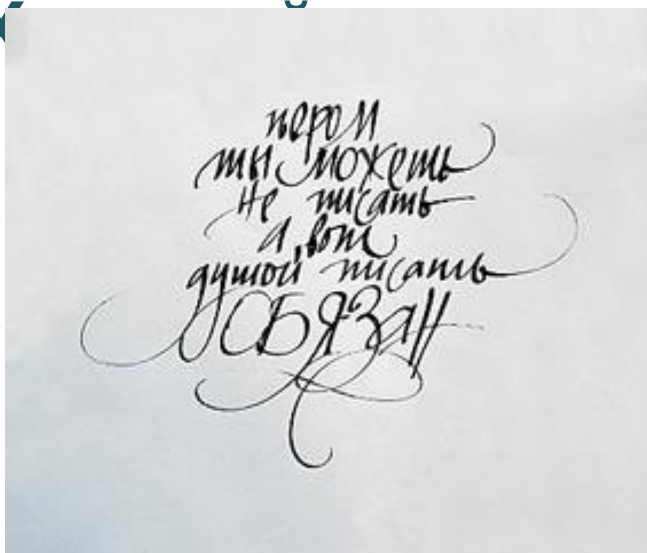 пером
ты можешь
не писать
а вот
душой писать
ОБЯЗАН